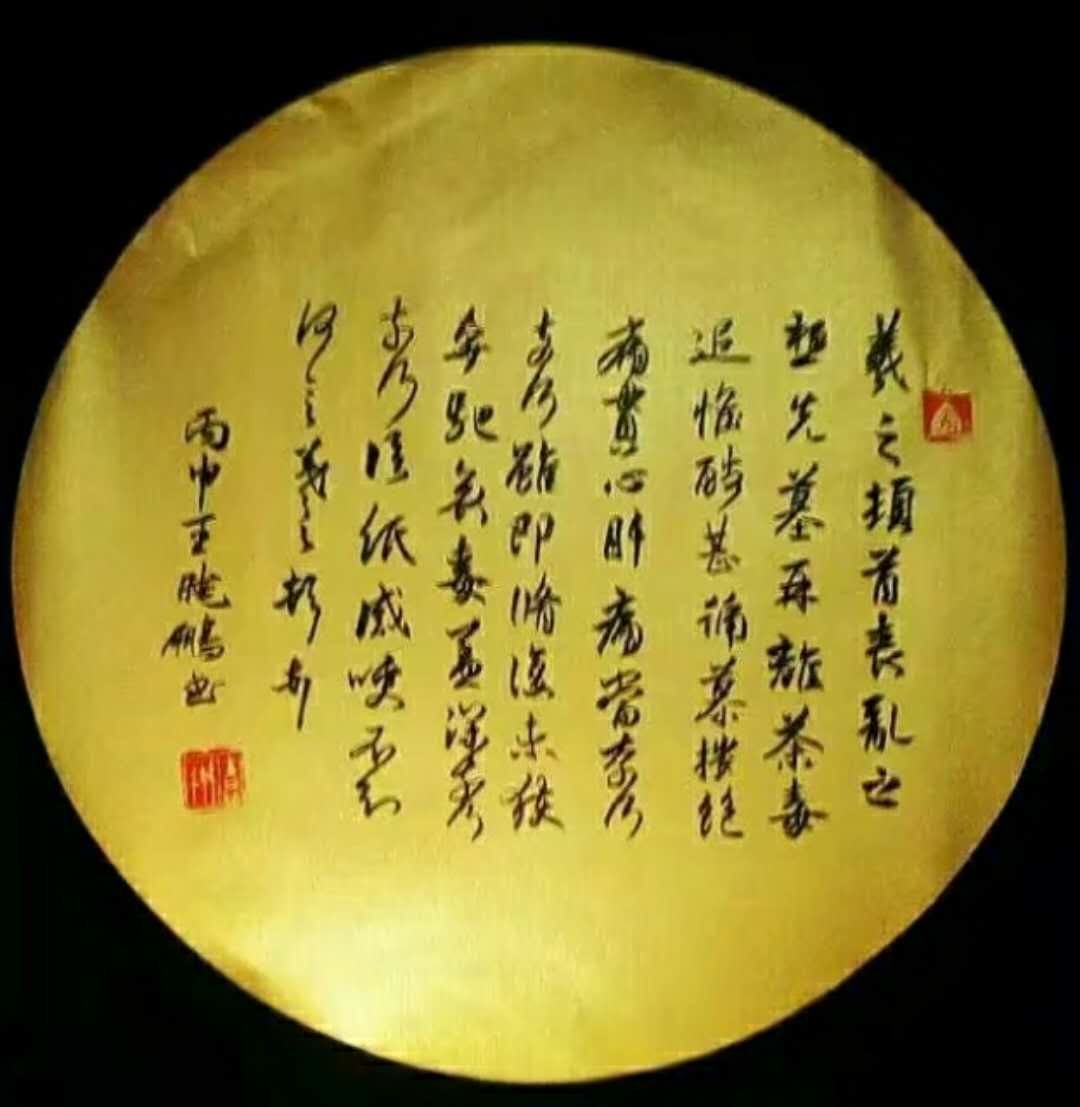 羲之頓首喪亂之
極先墓再離荼毒
追惟酷甚號慕摧絕
痛貫心肝痛當奈何
奈何雖即脩復未獲
奔馳哀毒益深奈何
奈何臨紙感哽不知
何言羲之頓首
丙申王晓鵬書